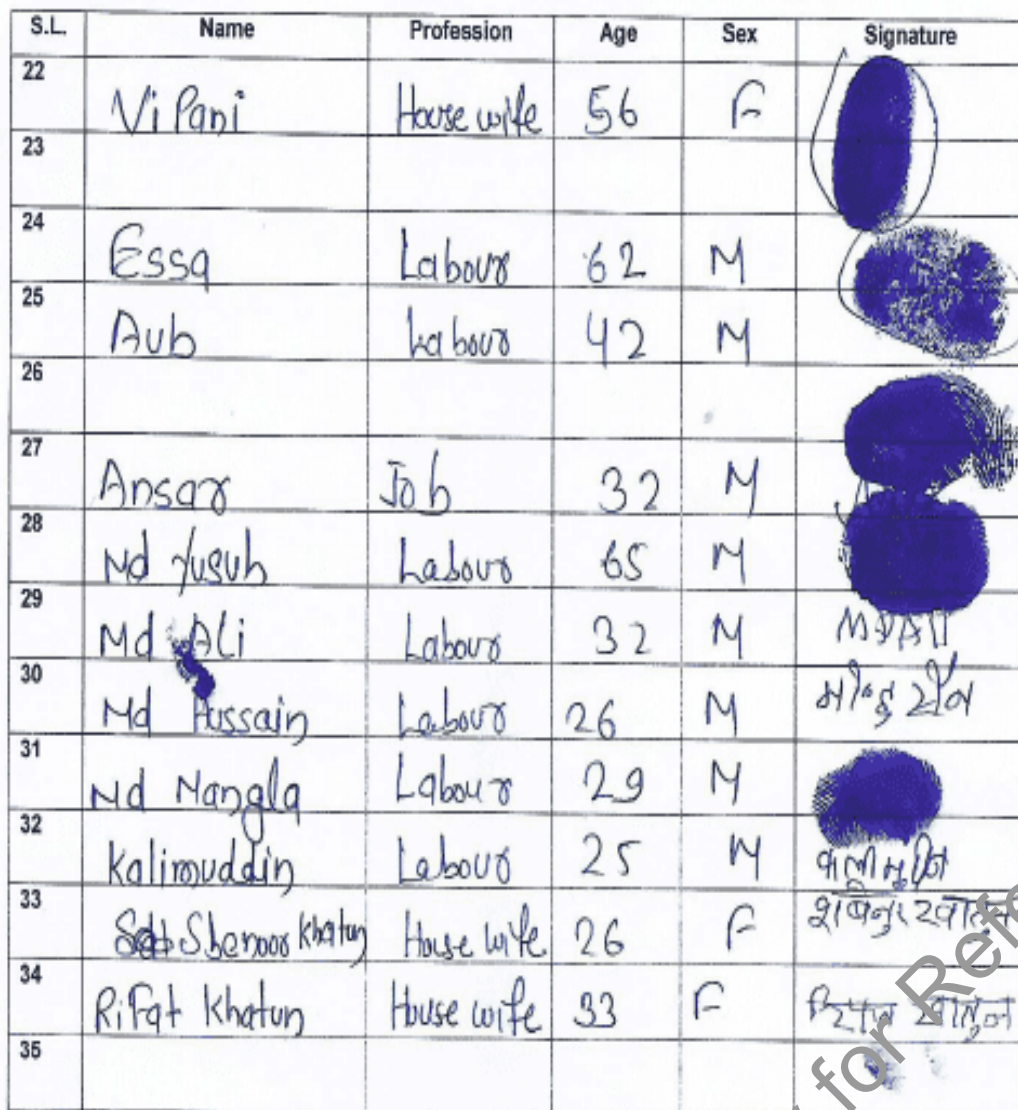 S.L. Name Profession Age Sex Signature
22 Vi Pani House wife 56 F
23
24 Essa Labour 62 M
25 Aub Labour 42 M
26
27 Ansar Job 32 M
28 Md Yusub Labour 65 M
29 Md Ali Labour 32 M MD Ali
30 Md Hussain Labour 26 M
31 Md Nangla Labour 29 M
32 Kalimuddin Labour 25 M
33 Shenoor Khatun House wife 26 F
34 Rifat Khatun House wife 33 F खातुन
35
for Refe